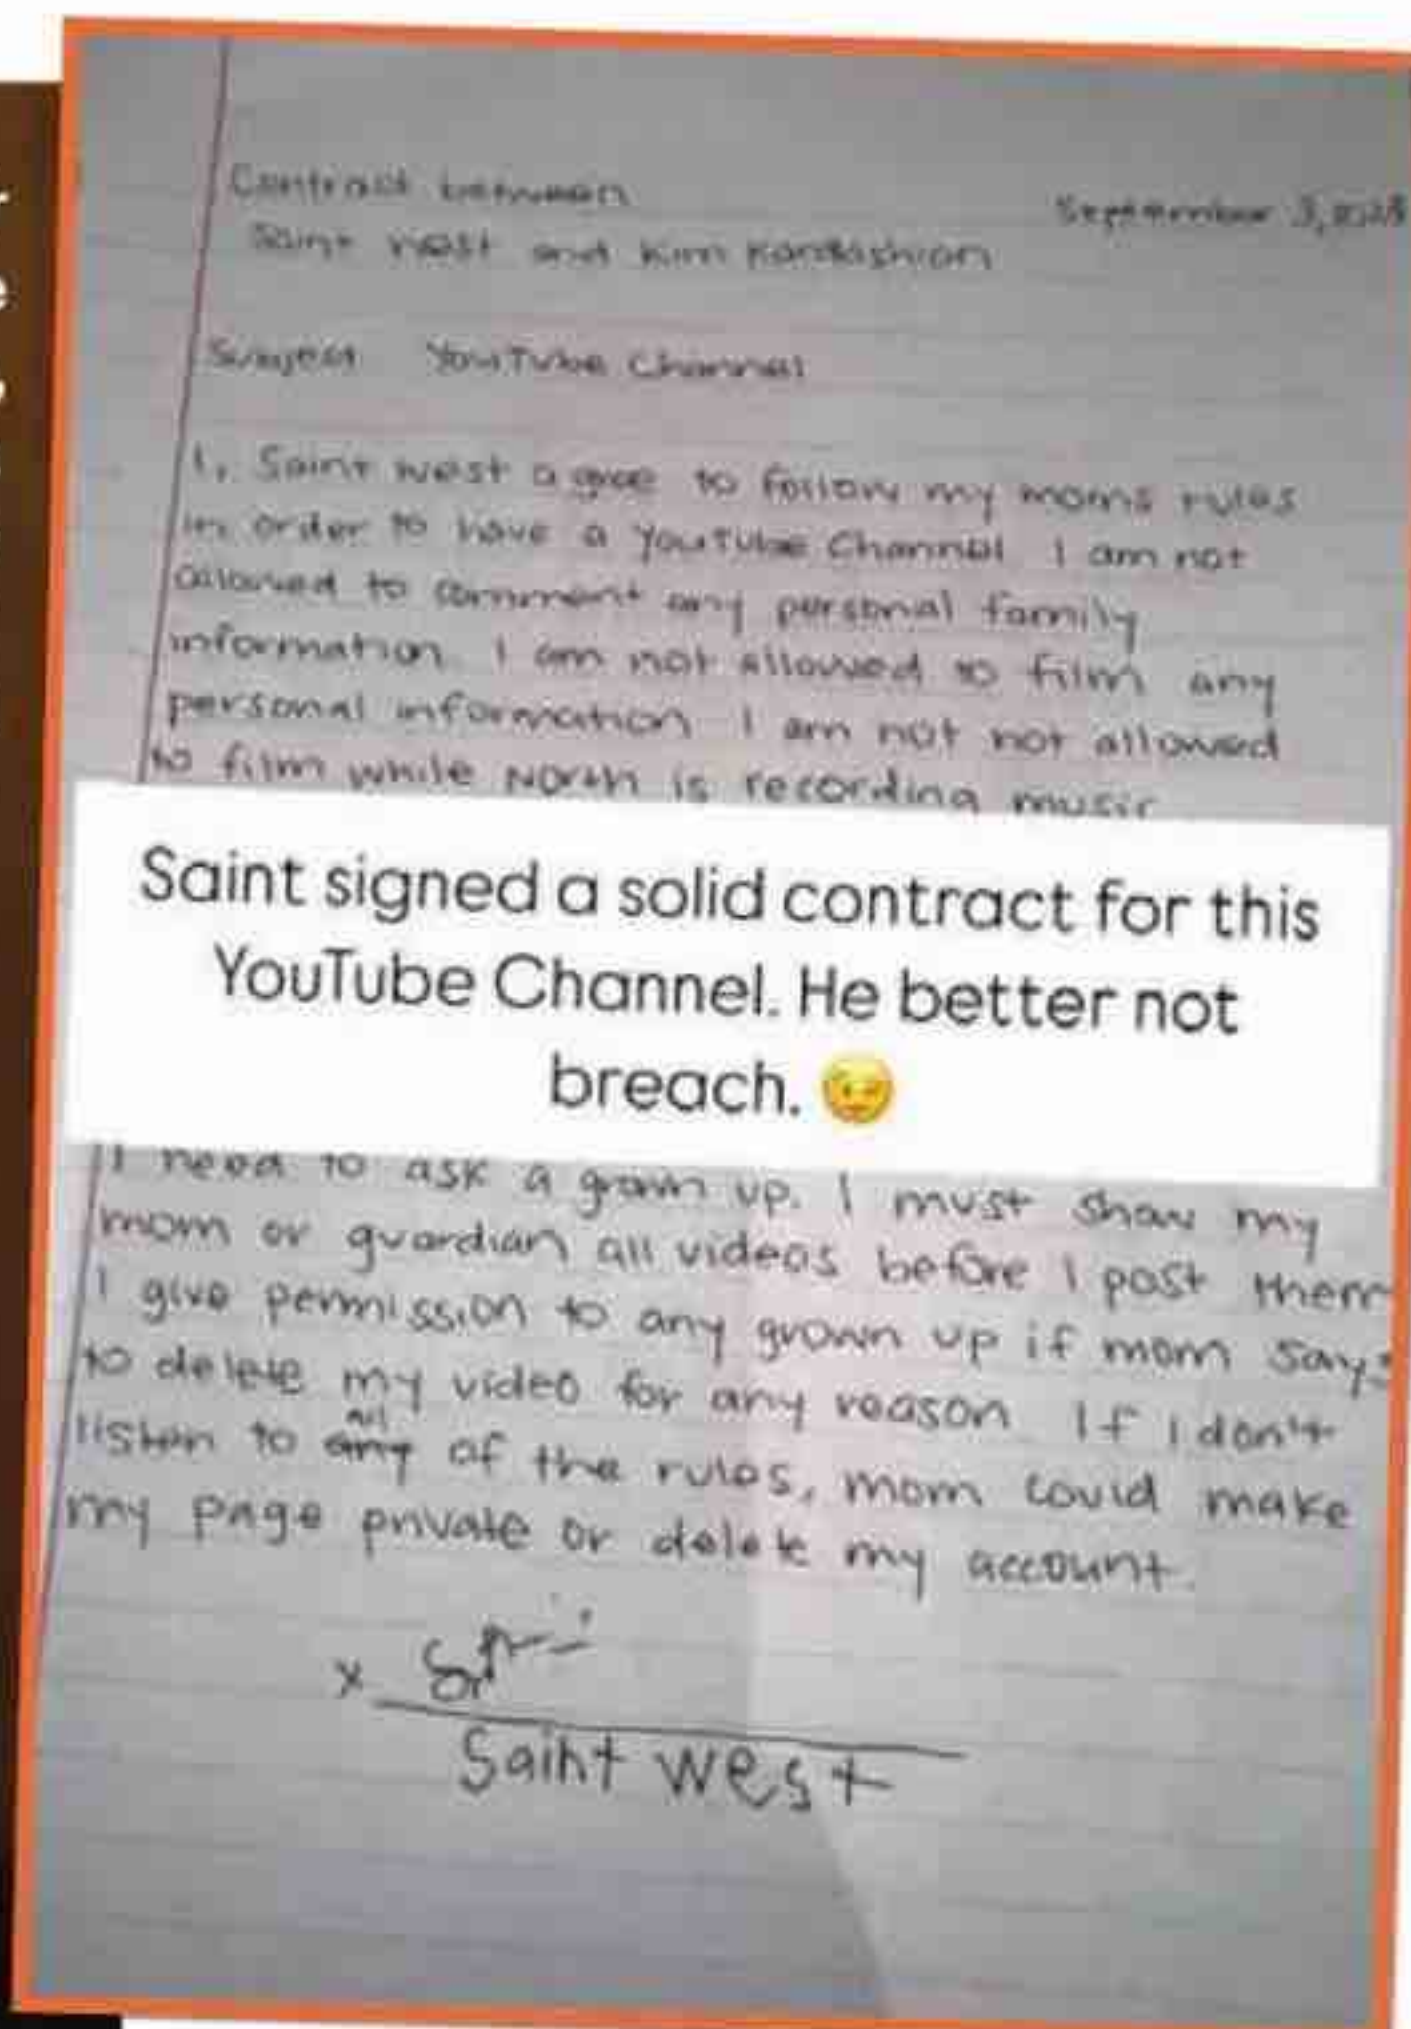 Contract between
September 3, 
Saint West and Kim Kardashian
Subject YouTube Channel
I, Saint West agree to follow my moms rules
in order to have a YouTube Channel I am not
allowed to comment any personal family
information. I am not allowed to film any
personal information I am not not allowed
to film while North is recording music
Saint signed a solid contract for this
YouTube Channel. He better not
breach. 😉
I need to ask a grown up. I must show my
mom or guardian all videos before I post them
I give permission to any grown up if mom says
to delete my video for any reason If I don't
all
listen to any of the rules, mom could make
my page private or delete my account.
x
Saint West